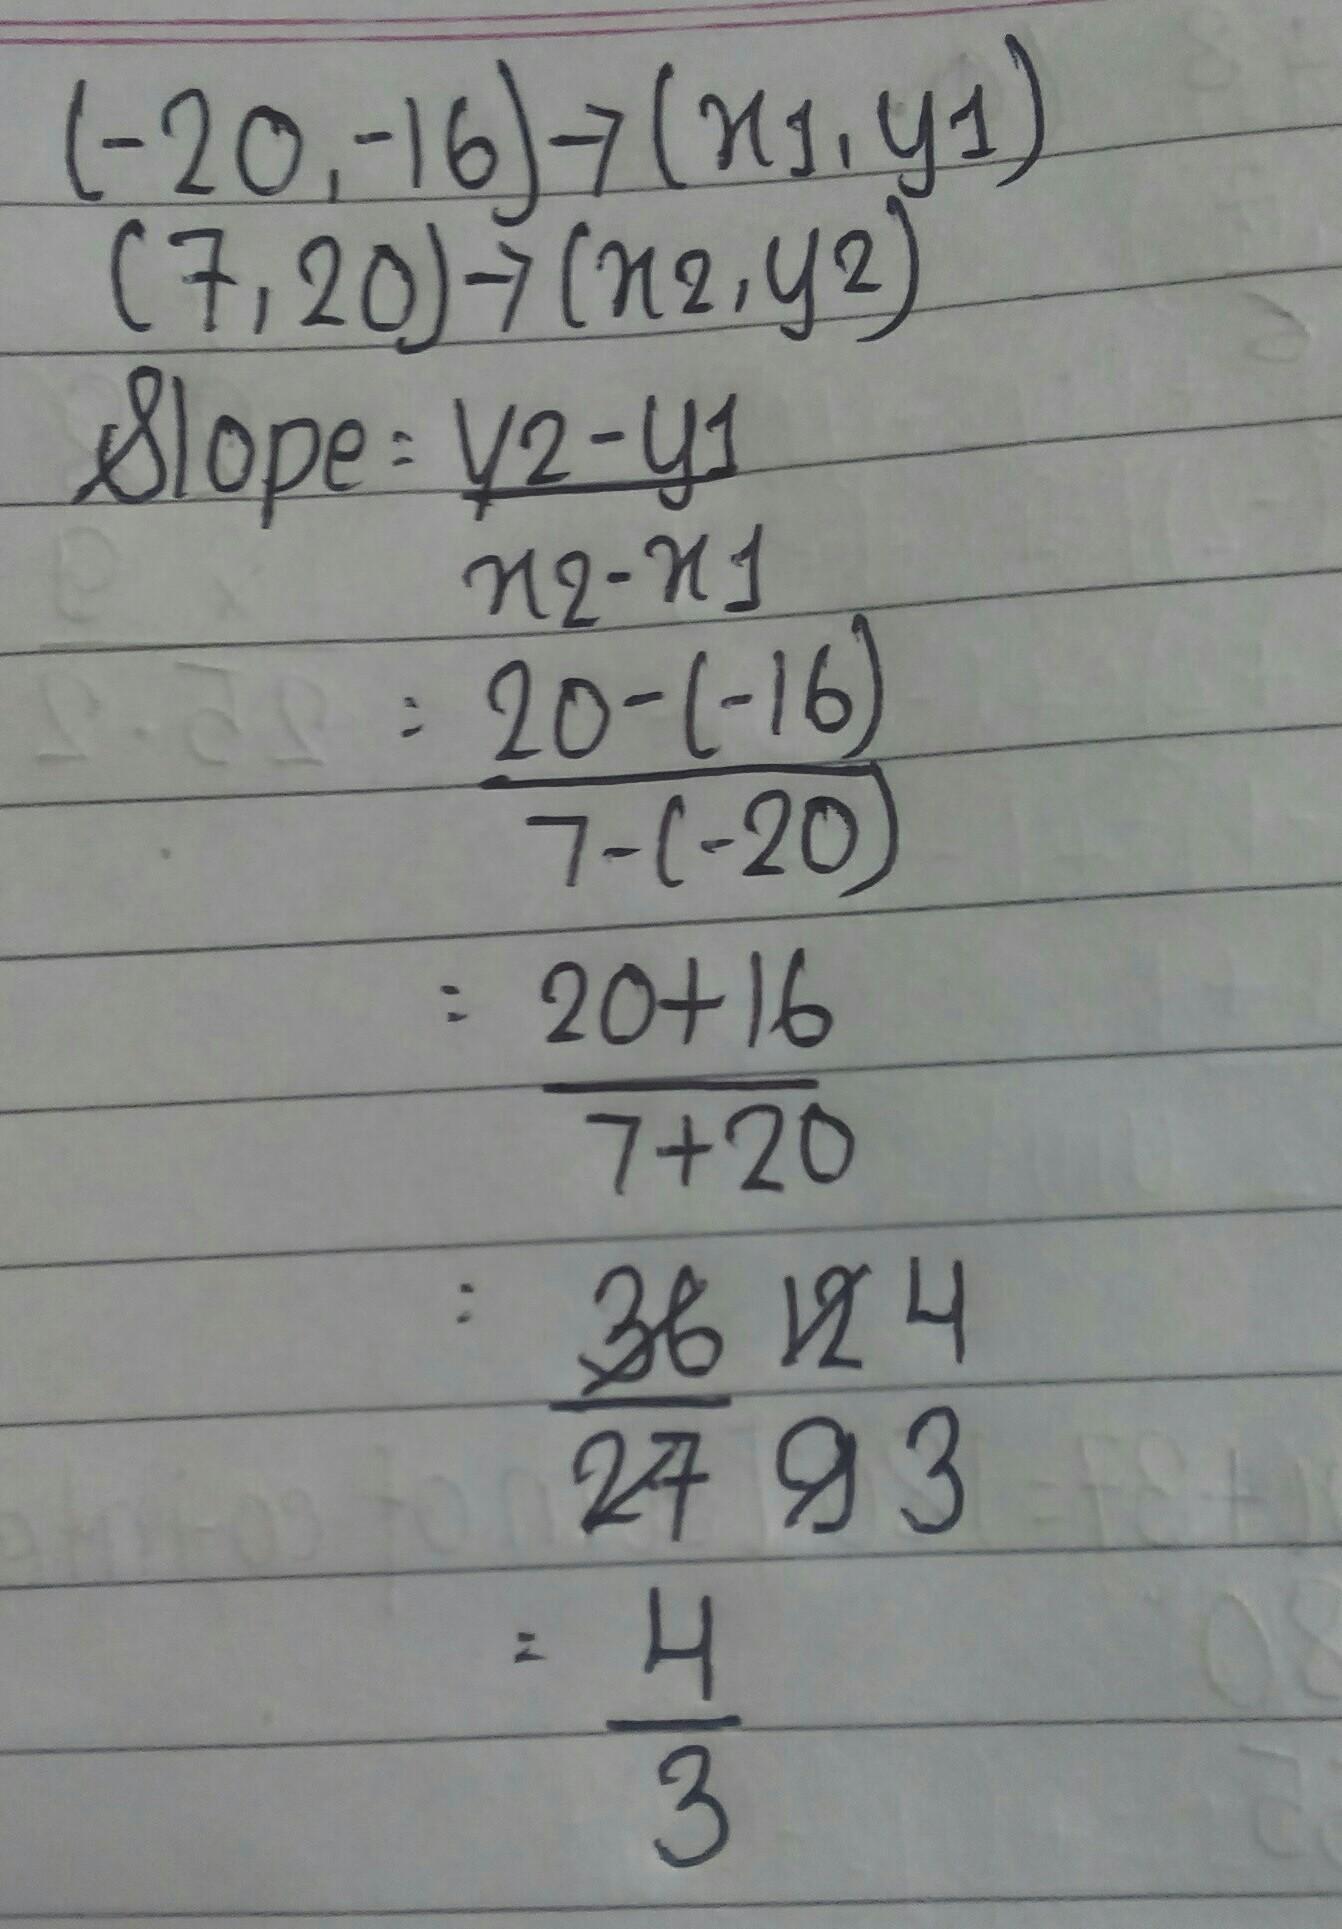 (-20,-16)→(x1,y1)
(7,20)→(x2,y2)
Slope= y2-y1
x2-x1
= 20-(-16)
7-(-20)
= 20+16
7+20
= 36 12 4
27 9 3
= 4
3